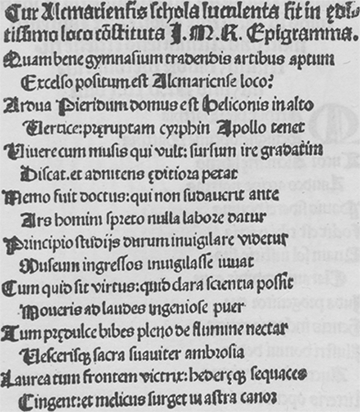 Cur Alcmariensis schola luculenta sit in ędi-
tissimo loco cōstituta J. M. R. Epigramma.
Quam bene gymnasium tradendis artibus aptum
Excelso positum est Alcmariense loco?
Ardua Pieridum domus est Heliconis in alto
Vertice: pręruptam cyrphin Apollo tenet
Viuere cum musis qui vult: sursum ire gradatim
Discat. et adnitens ęditiora petat
Nemo fuit doctus: qui non sudauerit ante
Ars homini spreto nulla labore datur
Principio studijs durum inuigilare videtur
Museum ingressos inuigilasse iuuat
Cum quid sit virtus: quid clara scientia possit
Moueris ad laudes ingeniose puer
Tum prędulce bibes pleno de flumine nectar
Vescerisq; sacra suauiter ambrosia
Laurea tum frontem victrix: hederęq; sequaces
Cingent: et melicus surget in astra canor